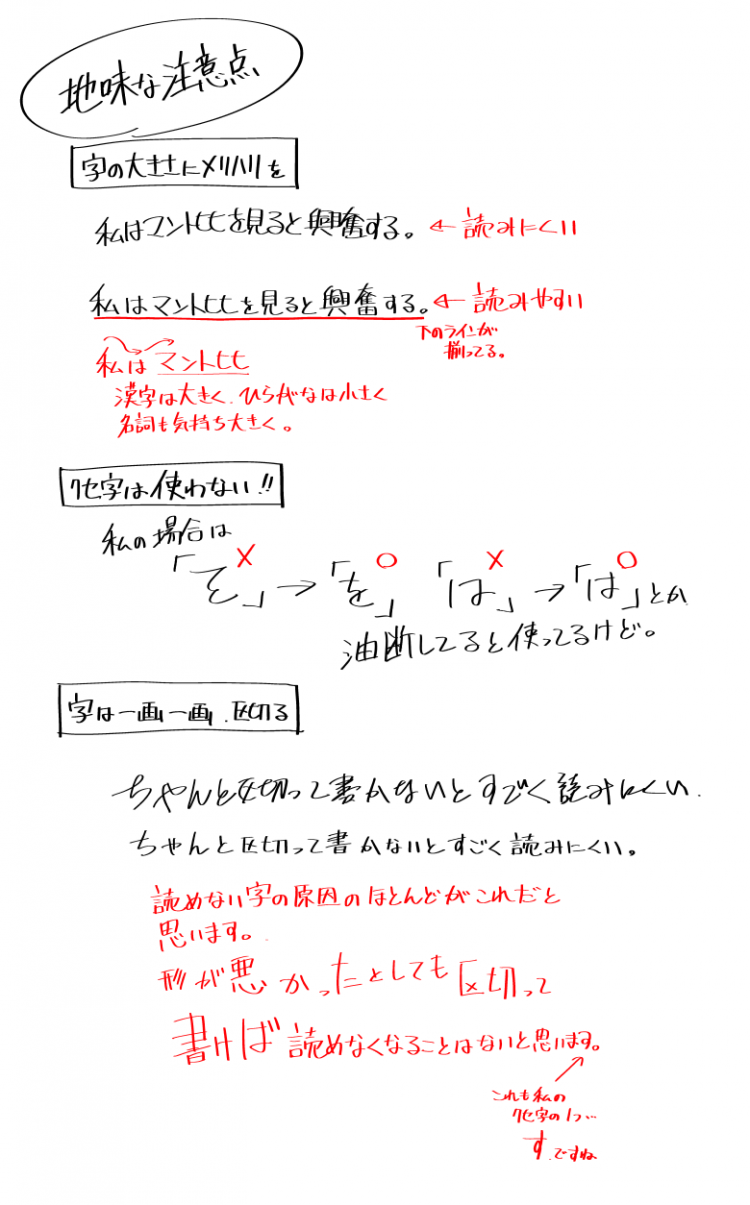 地味な注意点
字の大きさにメリハリを
私はマントヒヒを見ると興奮する。←読みにくい
私はマントヒヒを見ると興奮する。←読みやすい
下のラインが
揃ってる。
私はマントヒヒ
漢字は大きく、ひらがなは小さく
名詞も気持ち大きく。
クセ字は使わない!!
私の場合は
「を」→「を」「は」→「は」とか
× ○ × ○
油断してると使ってるけど。
字は一画一画、区切る
ちゃんと区切って書かないとすごく読みにくい.
ちゃんと区切って書かないとすごく読みにくい。
読めない字の原因のほとんどがこれだと
思います。
形が悪かったとしても区切って
書けば読めなくなることはないと思います。
これも私の
クセ字の1つ…
す.ですね